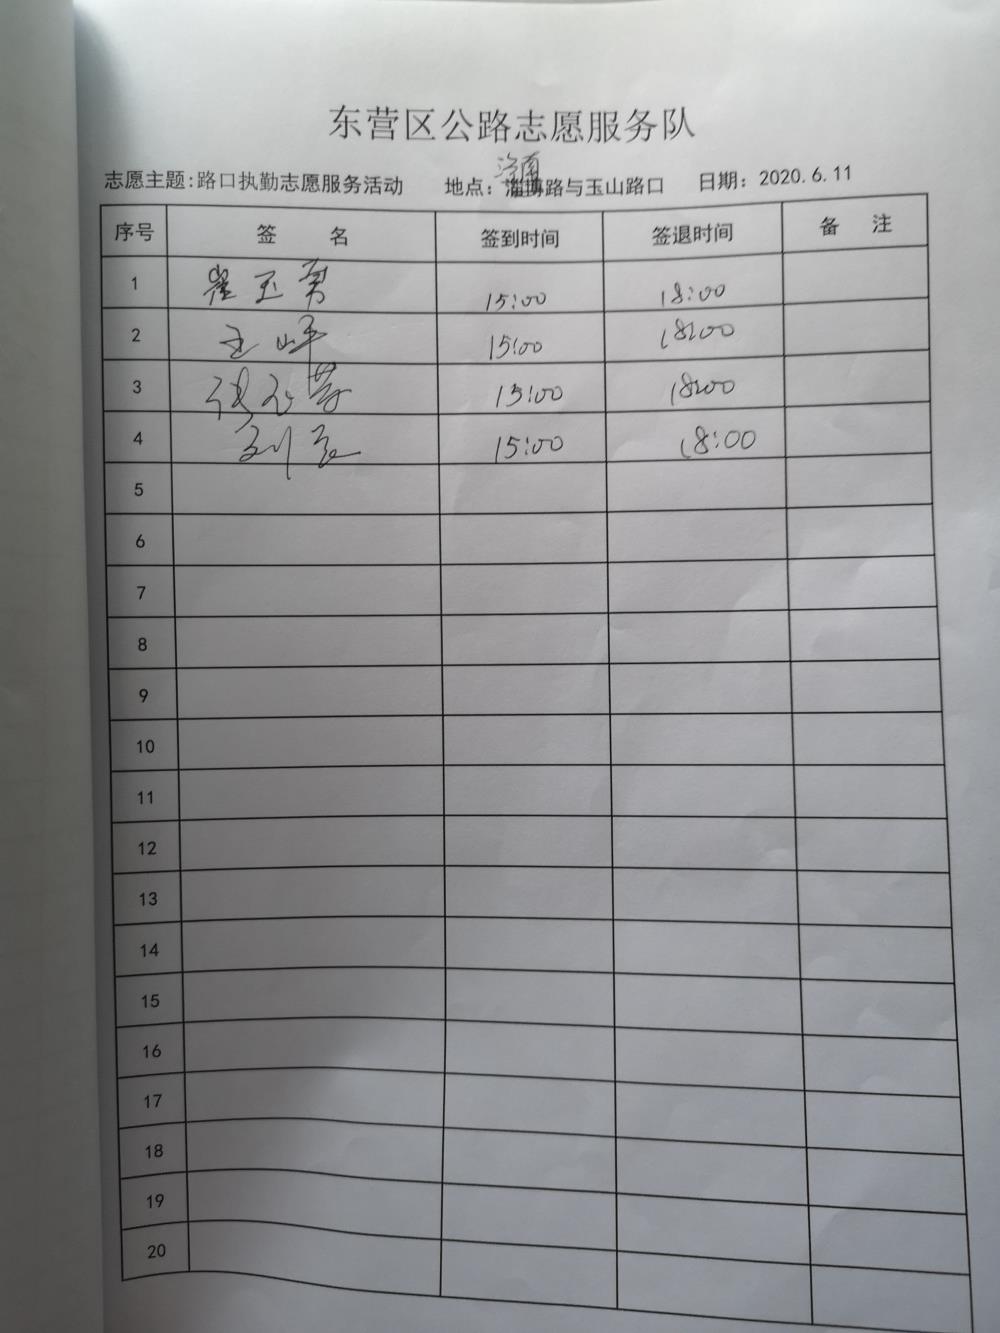 东营区公路志愿服务队
济南
志愿主题:路口执勤志愿服务活动 地点:淄博路与玉山路口 日期:2020.6.11
序号 签 名 签到时间 签退时间 备 注
1 崔玉勇 15:00 18:00
2 王峰 15:00 18:00
3 15:00 18:00
4 15:00 18:00
5
6
7
8
9
10
11
12
13
14
15
16
17
18
19
20